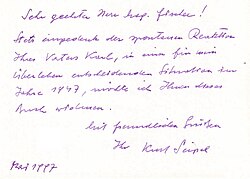 Sehr geehrter Herr Insp. Finder!
Stets eingedenk der spontanen Reaktion
Ihres Vaters Karl, in einer für mein
Überleben entscheidenden Situation im
Jahre 1947, möchte ich Ihnen dieses
Buch widmen.
Mit freundlichen Grüßen
Ihr Kurt Seipel
Mai 1997